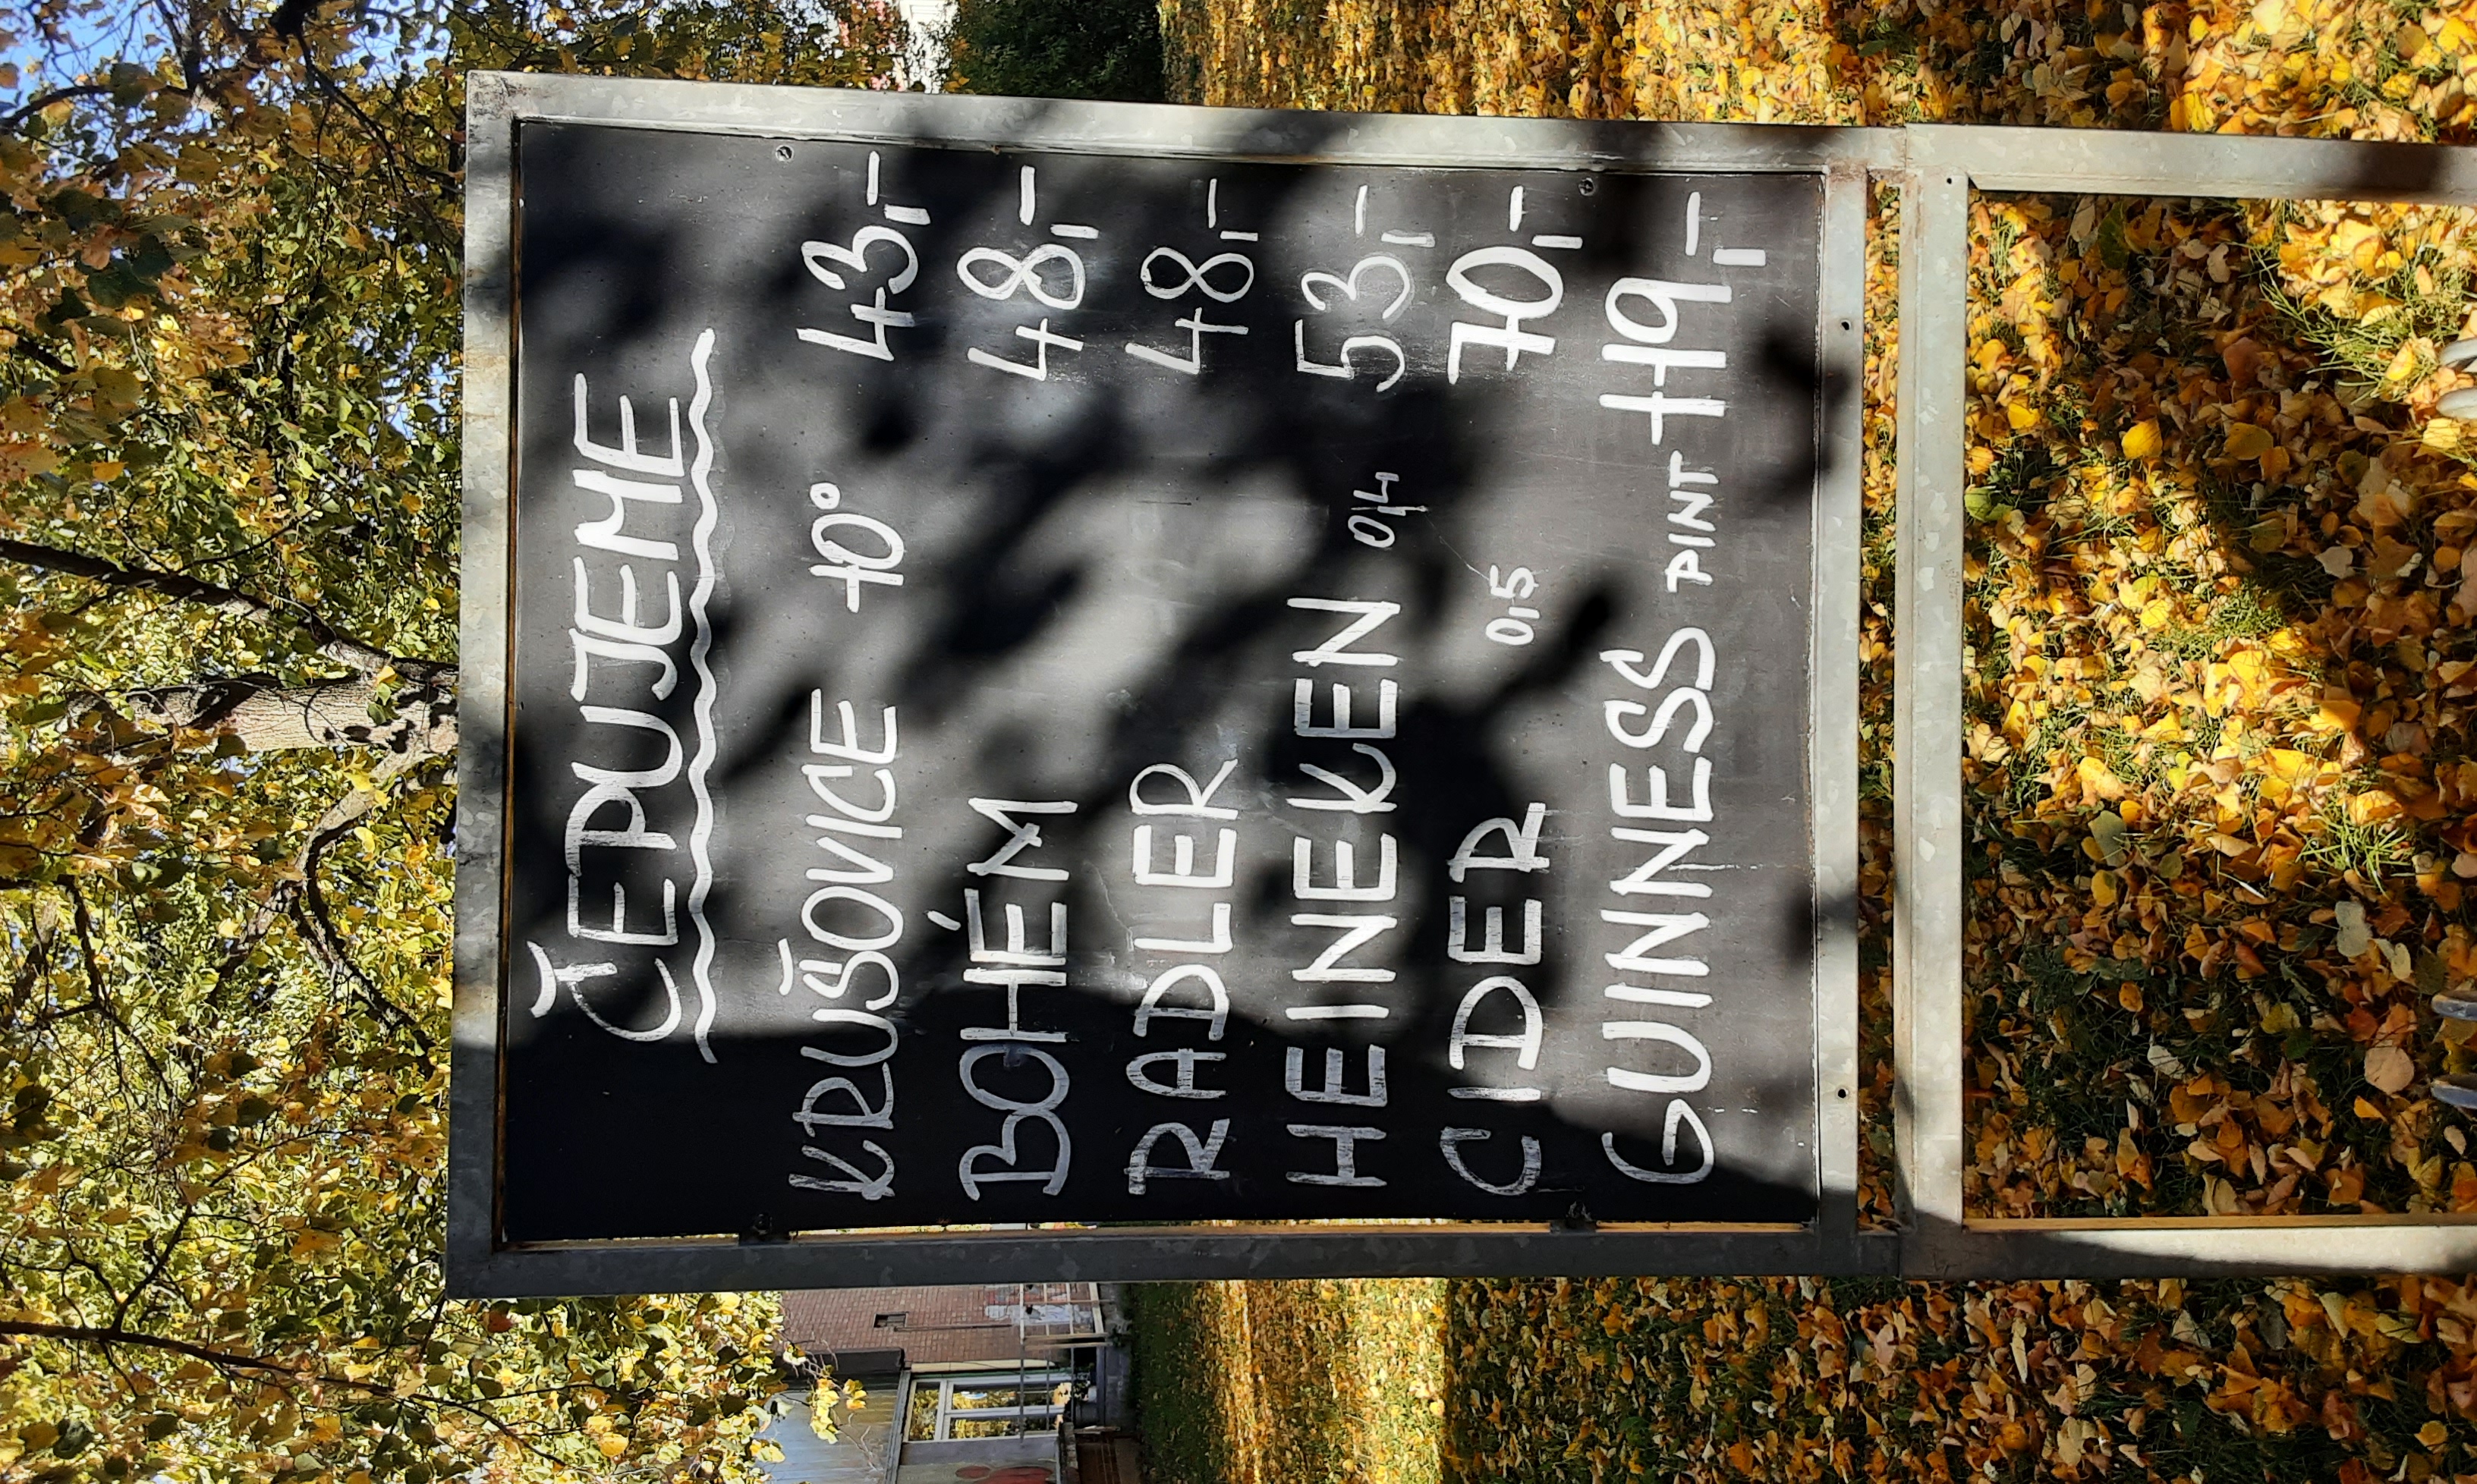 ČEPUJEME
KRUŠOVICE 10° 43,-
BOHÉM 48,-
RADLER 48,-
HEINEKEN 0,4 53,-
CIDER 0,5 70,-
GUINNESS PINT 119,-